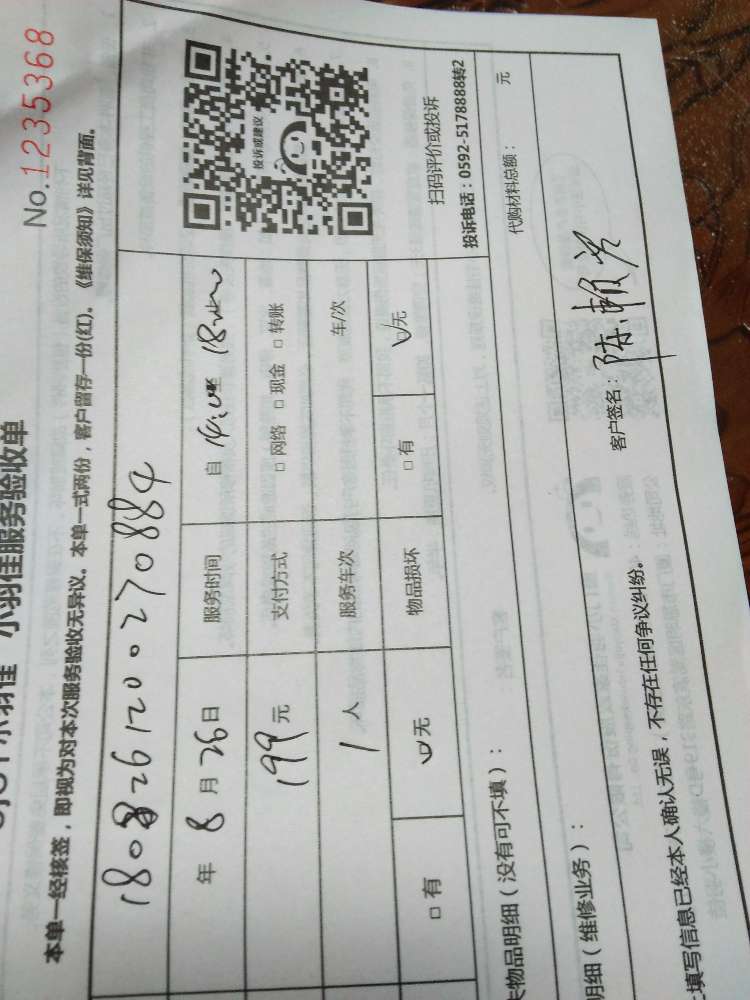 No.1235368
小羽佳服务验收单
本单一经核签，即视为对本次服务验收无异议。本单一式两份，客户留存一份(红)。《维保须知》详见背面。
1808261200270884
投诉或建议
年 8 月 26 日 服务时间 自 14:00 至 18:00
199 元 支付方式 □ 网络 □ 现金 □ 转账
1 人 服务车次 车/次
□ 有 无 物品损坏 □ 有 无
扫码评价或投诉
投诉电话：0592-5178888转2
失物品明细（没有可不填）：
代购材料总额： 元
明细（维修业务）：
客户签名：陈
填写信息已经本人确认无误，不存在任何争议纠纷。